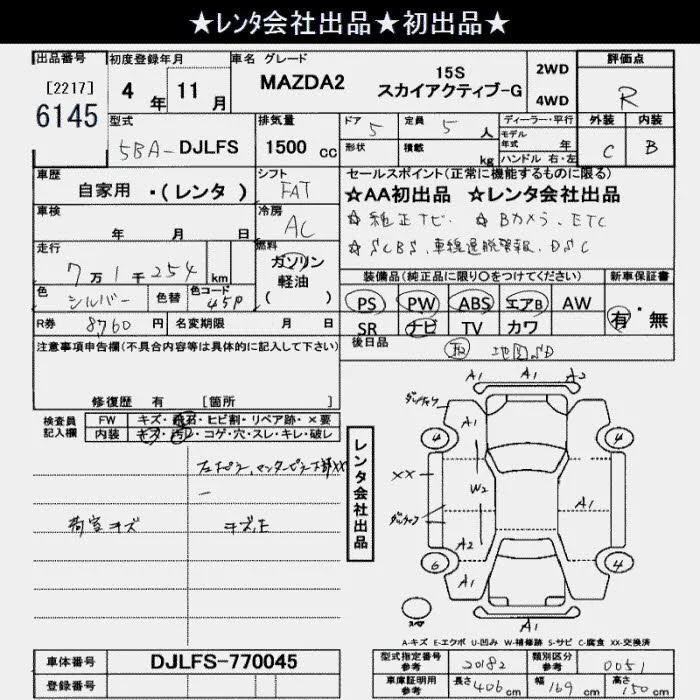 ★レンタ会社出品★初出品★
出品番号 初度登録年月 車名 グレード 評価点
[2217] 4 年 11 月 MAZDA2 15S スカイアクティブ-G 2WD 4WD R
6145
型式 排気量 ドア 5 定員 5 人 ディーラー・平行 外装 内装
5BA-DJLFS 1500 cc 形状 積載 kg モデル年式 年 C B
ハンドル 右・左
車歴 シフト セールスポイント(正常に機能するものに限る)
自家用 ・(レンタ) FAT ★AA初出品 ☆レンタ会社出品
車検 冷房 ☆ 純正ナビ. ☆ Bカメラ. ETC
年 月 日 AC ☆ SCBS. 車線逸脱警報. DSC
走行 燃料
7万1千254 km ガソリン 軽油 ( )
装備品(純正品に限り○をつけてください) 新車保証書
色 シルバー 色替 色コード 45P
PS PW ABS エアB AW 有・無
R券 8760 円 名変期限 月 日
SR ナビ TV カワ
注意事項申告欄(不具合内容等は具体的に記入して下さい)
後日品 取 地図SD
修復歴 有 [箇所 ]
検査員記入欄 FW キズ・飛石・ヒビ割・リペア跡・×要
内装 キズ・汚レ・コゲ・穴・スレ・キレ・破レ
荷室キズ キズ,E
レンタ会社出品
A1 A1 A2
4 A1 4
XX W2 A1
A2
6 A1 4
A1
A-キズ E-エクボ U-凹み W-補修跡 S-サビ C-腐食 XX-交換済
車体番号 DJLFS-770045
型式指定番号 参考 20182 類別区分 参考 0051
登録番号
車庫証明用 参考 長さ 406 cm 幅 169 cm 高さ 150 cm